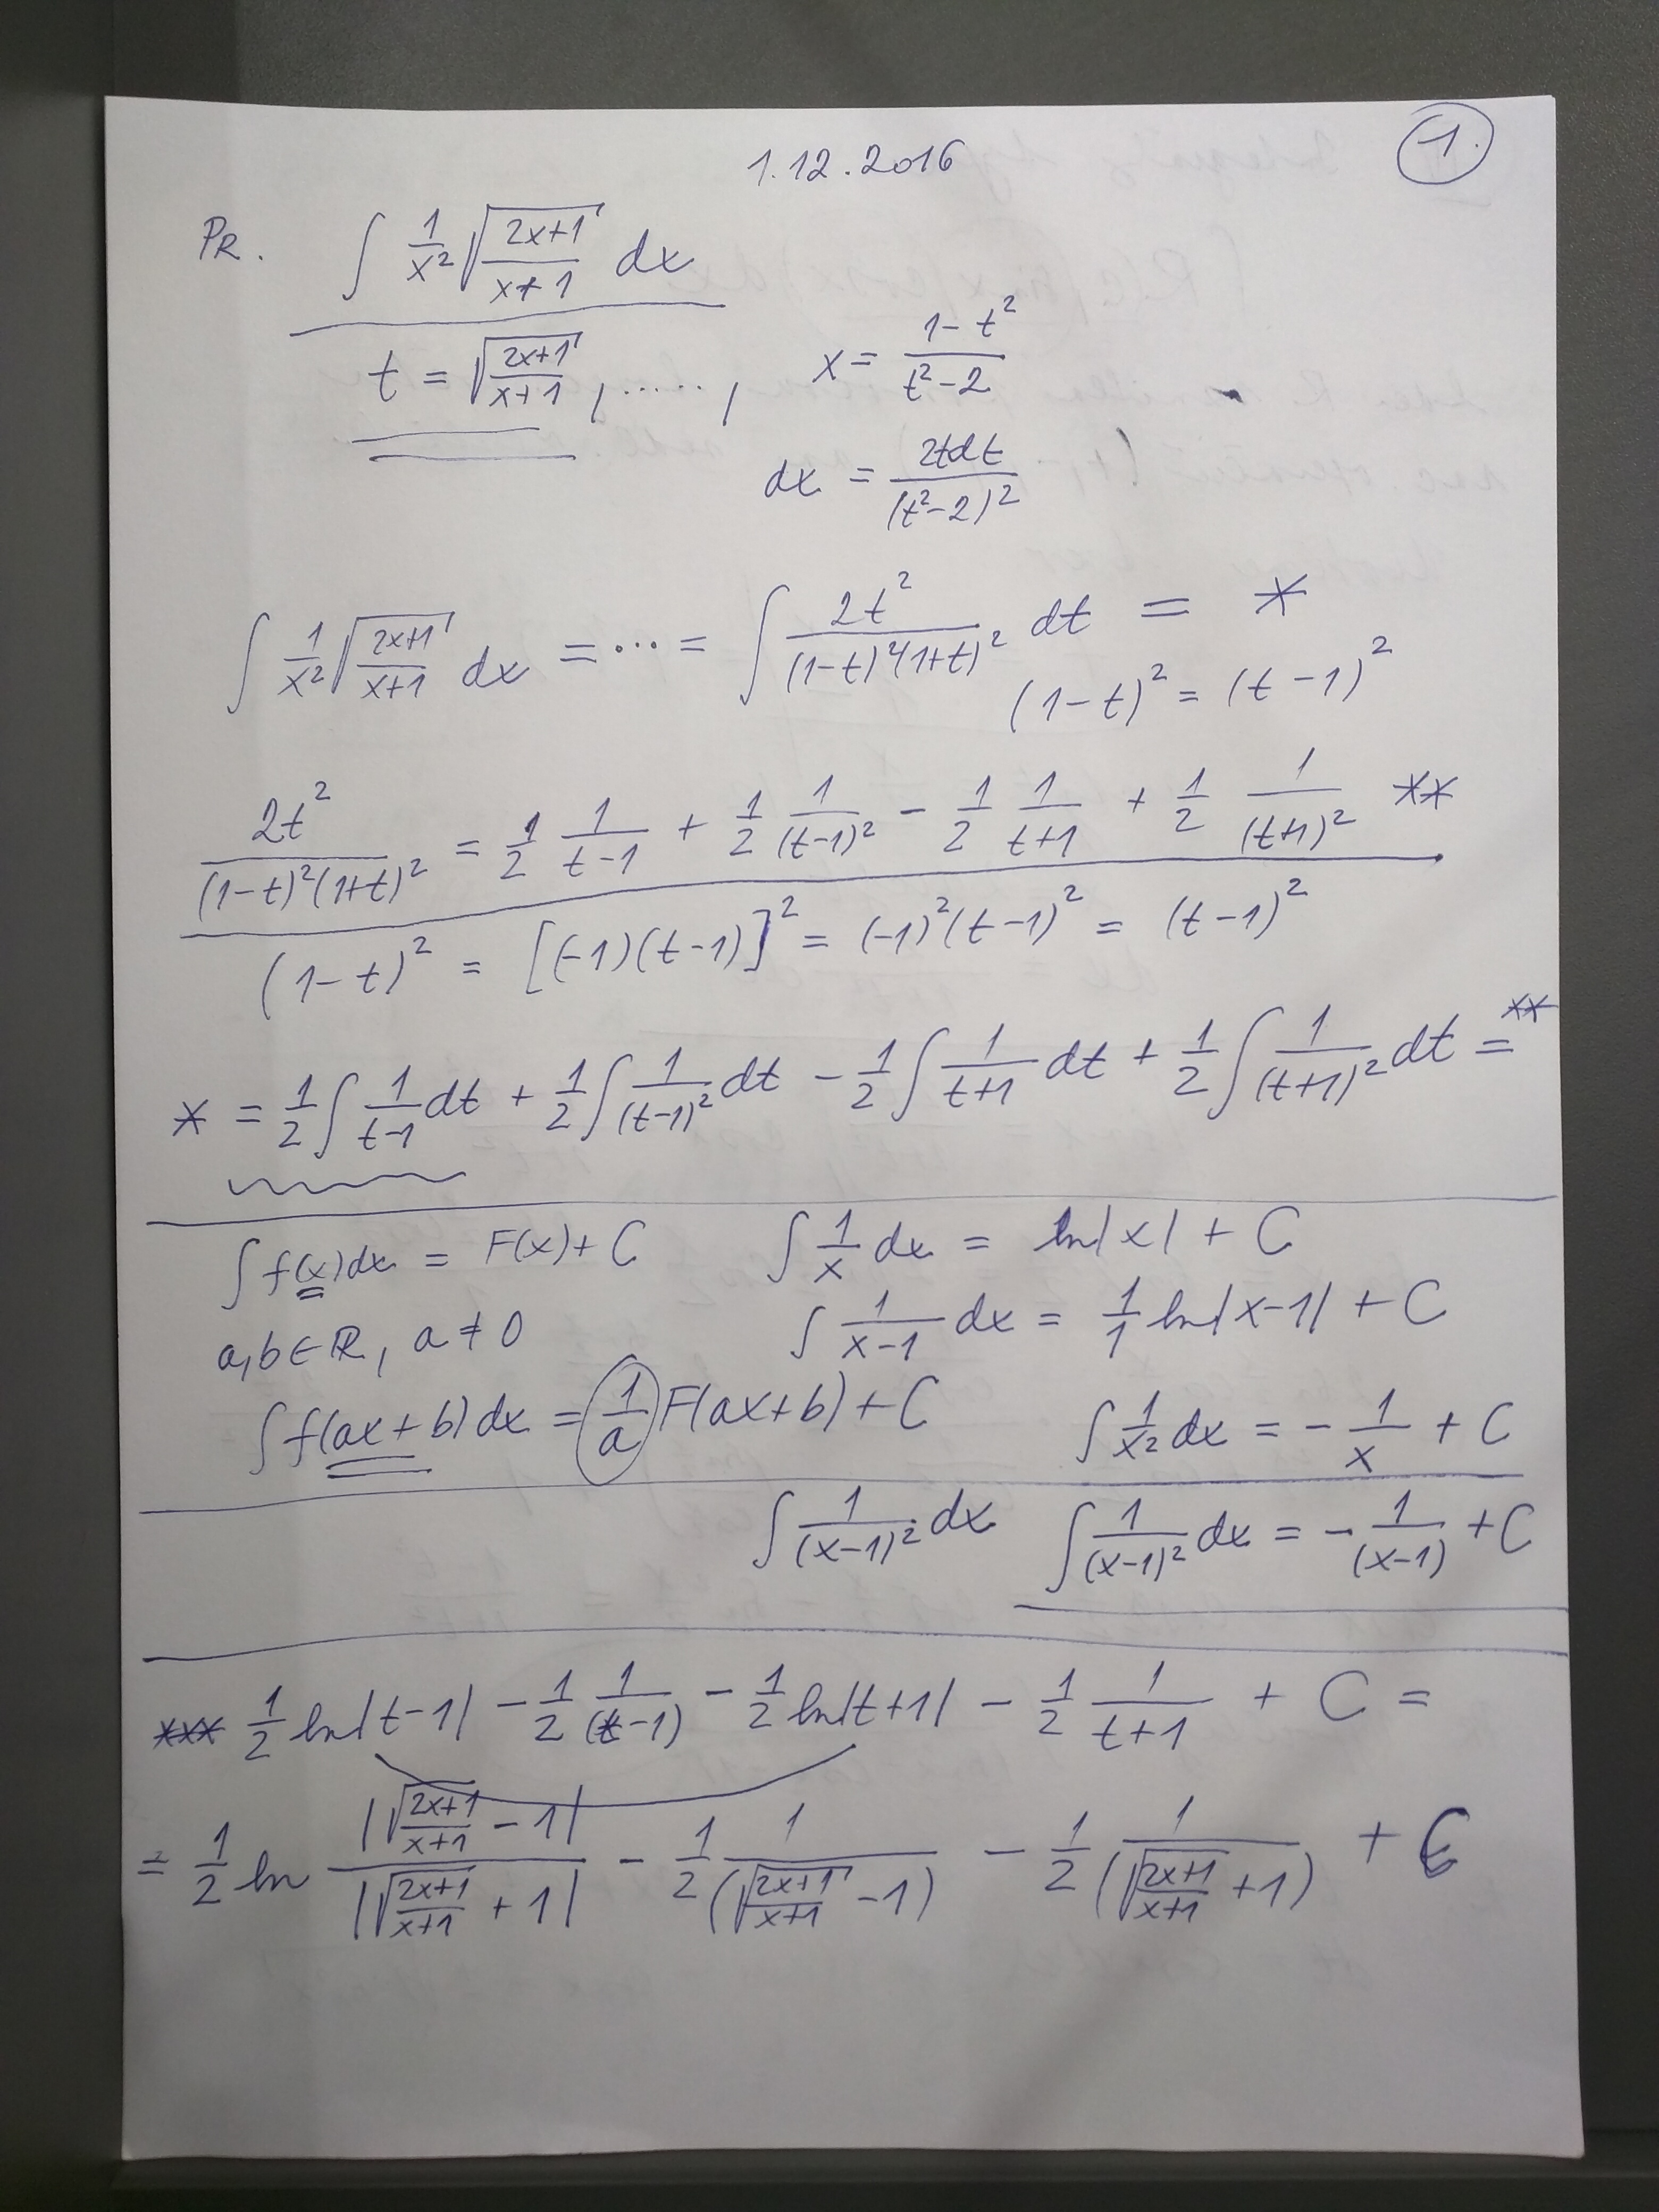 1.
1.12.2016
PR. ∫ 1/x² √((2x+1)/(x+1)) dx
t = √((2x+1)/(x+1)) , ....., x = (1-t²)/(t²-2)
dx = 2tdt/(t²-2)²
∫ 1/x² √((2x+1)/(x+1)) dx = ... = ∫ 2t²/((1-t)²(1+t)²) dt = *
(1-t)² = (t-1)²
2t²/((1-t)²(1+t)²) = 1/2 1/(t-1) + 1/2 1/(t-1)² - 1/2 1/(t+1) + 1/2 1/(t+1)² **
(1-t)² = [(-1)(t-1)]² = (-1)²(t-1)² = (t-1)²
* = 1/2 ∫ 1/(t-1) dt + 1/2 ∫ 1/(t-1)² dt - 1/2 ∫ 1/(t+1) dt + 1/2 ∫ 1/(t+1)² dt = **
∫ f(x)dx = F(x) + C ∫ 1/x dx = ln|x| + C
a,b ∈ ℝ, a ≠ 0 ∫ 1/(x-1) dx = 1/1 ln|x-1| + C
∫ f(ax+b)dx = 1/a F(ax+b) + C ∫ 1/x² dx = - 1/x + C
∫ 1/(x-1)² dx ∫ 1/(x-1)² dx = - 1/(x-1) + C
*** 1/2 ln|t-1| - 1/2 1/(t-1) - 1/2 ln|t+1| - 1/2 1/(t+1) + C =
= 1/2 ln |√((2x+1)/(x+1)) - 1|/|√((2x+1)/(x+1)) + 1| - 1/2 1/(√((2x+1)/(x+1)) - 1) - 1/2 1/(√((2x+1)/(x+1)) + 1) + C